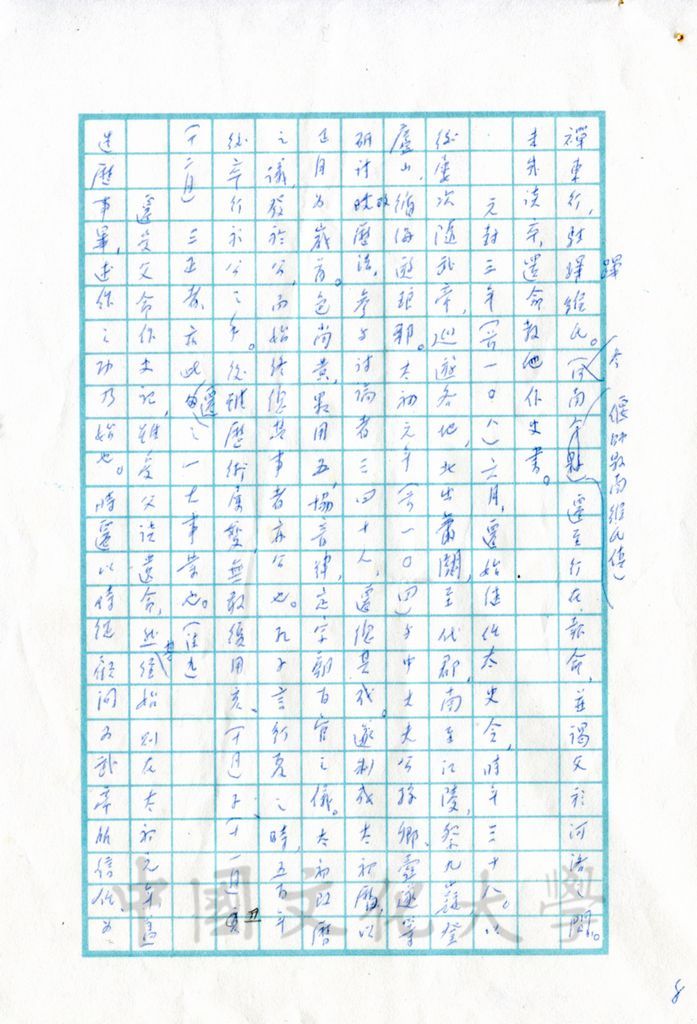 禪東行,駐蹕緱氏。(河南今縣)遷至行在報命,並謁父於河洛間。
蹕
今偃師縣南緱氏
未先談卒,遺命教他作史書。
元封三年(前一〇八)六月,遷始继任太史令,時年三十八。以
後屢次隨武帝,巡遊各地,北出蕭關,至代郡,南至江陵,祭九嶷登
廬山,循海遊琅邪。太初元年(前一〇四)与中大夫公孫卿、壺遂等
研討改曆法,参与討論者三四十人,遷總其成。遂制成太初曆,以
正月为歲首。色尚黄,數用五,協音律,定宗廟百官之儀。太初改曆
之議,發於公,而始終總其事者亦公也。孔子言行夏之時,五百年
後卒行於公之手。後雖曆術屢變,無敢復用亥、(十月)子、(十一月)丑
(十二月)三正者,亦此遷之一大事業也。(註九)
遷受父命作史記,雖受父談遺命,然其經始則在太初元年。蓋
造曆事畢,述作之功乃始也。時遷以侍從顧问为武帝所信任,为
8
中國文化大學